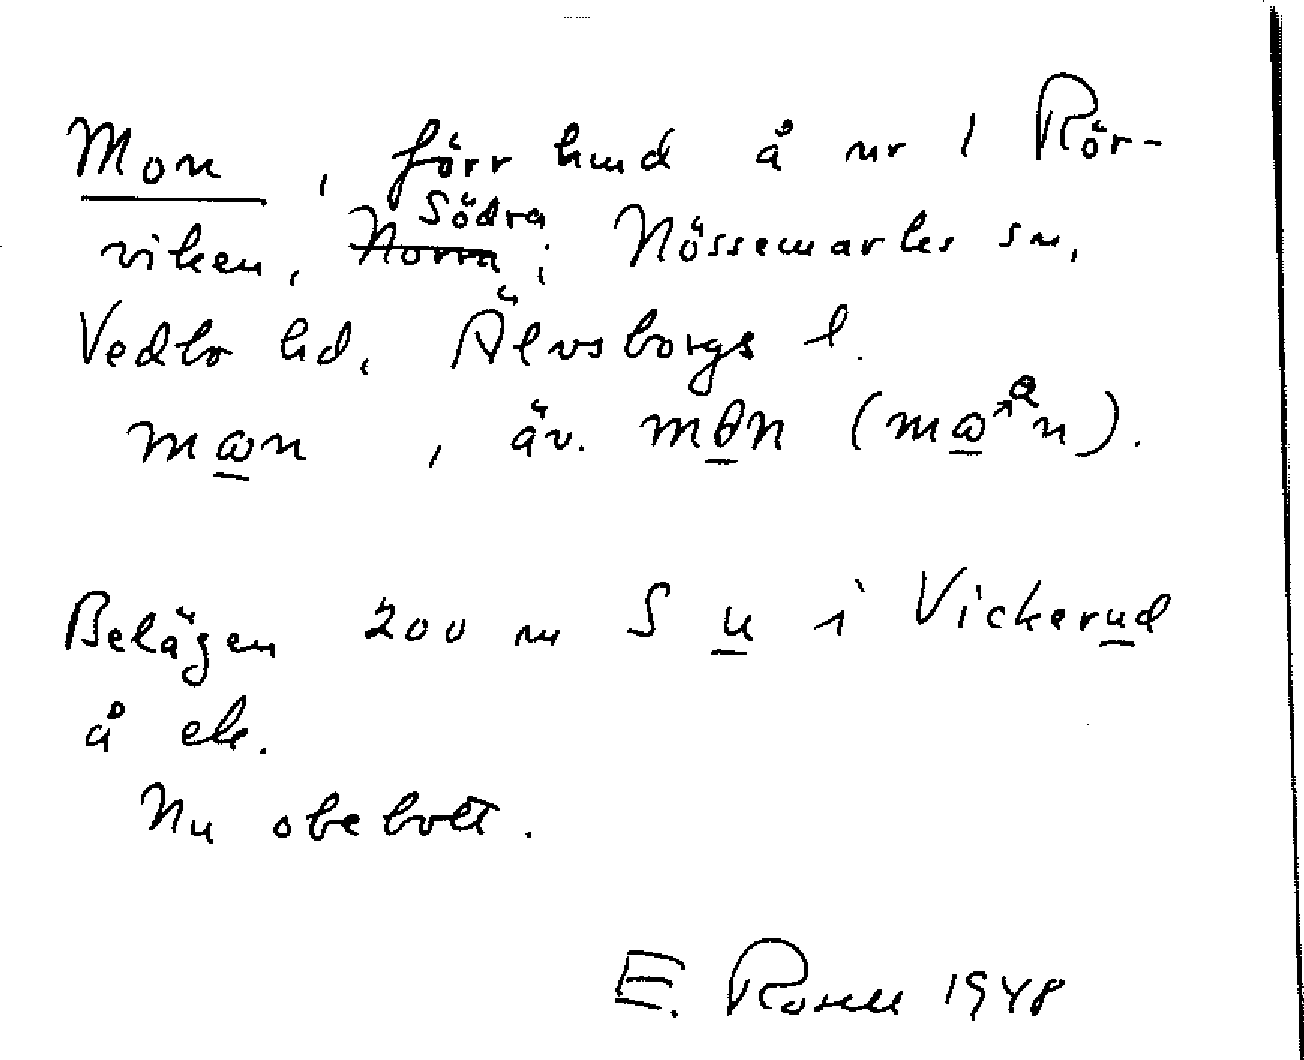 Mon, förr hmd å nr 1 Rör-
viken, Norra Södra; Nössemarks sn,
Vedbo hd, Älvsborgs l.
mωn, äv. mθn (mωn).
Belägen 200 m S u i Vickerud
å ek.
Nu obebott.
E. Rosell 1948